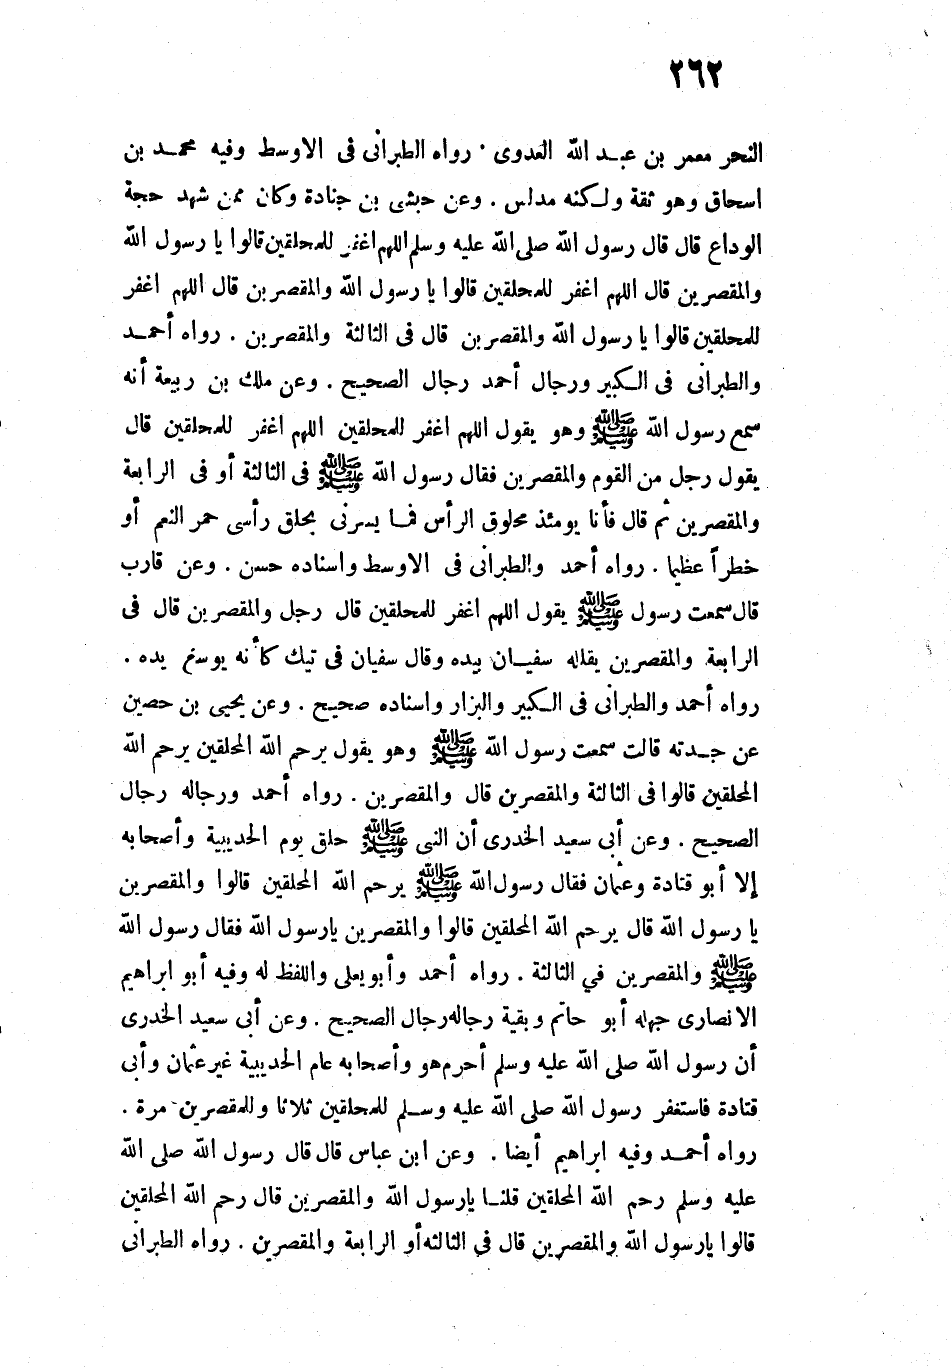 ٢٦٢
النحر معمر بن عبد الله العدوى . رواه الطبرانى فى الاوسط وفيه محمد بن
اسحاق وهو ثقة ولكنه مدلس . وعن حبشى بن جنادة وكان ممن شهد حجة
الوداع قال قال رسول الله صلى الله عليه وسلم اللهم اغفر للمحلقين قالوا يا رسول الله
والمقصرين قال اللهم اغفر للمحلقين قالوا يا رسول الله والمقصرين قال اللهم اغفر
للمحلقين قالوا يا رسول الله والمقصرين قال فى الثالثة والمقصرين . رواه أحمد
والطبرانى فى الكبير ورجال أحمد رجال الصحيح . وعن ملك بن ربيعة أنه
سمع رسول الله ﷺ وهو يقول اللهم اغفر للمحلقين اللهم اغفر للمحلقين قال
يقول رجل من القوم والمقصرين فقال رسول الله ﷺ فى الثالثة أو فى الرابعة
والمقصرين ثم قال فأنا يومئذ محلوق الرأس فما يسرنى بحلق رأسى حمر النعم أو
خطراً عظيما . رواه أحمد والطبرانى فى الاوسط واسناده حسن . وعن قارب
قال سمعت رسول ﷺ يقول اللهم اغفر للمحلقين قال رجل والمقصرين قال فى
الرابعة والمقصرين يقلله سفيان بيده وقال سفيان فى تيك كأنه يوسع يده .
رواه أحمد والطبرانى فى الكبير والبزار واسناده صحيح . وعن يحيى بن حصين
عن جدته قالت سمعت رسول الله ﷺ وهو يقول يرحم الله المحلقين يرحم الله
المحلقين قالوا فى الثالثة والمقصرين قال والمقصرين . رواه أحمد ورجاله رجال
الصحيح . وعن أبى سعيد الخدرى أن النبى ﷺ حلق يوم الحديبية وأصحابه
إلا أبو قتادة وعثمان فقال رسول الله ﷺ يرحم الله المحلقين قالوا والمقصرين
يا رسول الله قال يرحم الله المحلقين قالوا والمقصرين يارسول الله فقال رسول الله
ﷺ والمقصرين في الثالثة . رواه أحمد وأبو يعلى واللفظ له وفيه أبو ابراهيم
الانصارى جهله أبو حاتم وبقية رجاله رجال الصحيح . وعن أبى سعيد الخدرى
أن رسول الله صلى الله عليه وسلم أحرم هو وأصحابه عام الحديبية غير عثمان وأبى
قتادة فاستغفر رسول الله صلى الله عليه وسلم للمحلقين ثلاثا وللمقصرين مرة .
رواه أحمد وفيه ابراهيم أيضا . وعن ابن عباس قال قال رسول الله صلى الله
عليه وسلم رحم الله المحلقين قلنا يارسول الله والمقصرين قال رحم الله المحلقين
قالوا يارسول الله والمقصرين قال في الثالثه أو الرابعة والمقصرين . رواه الطبرانى